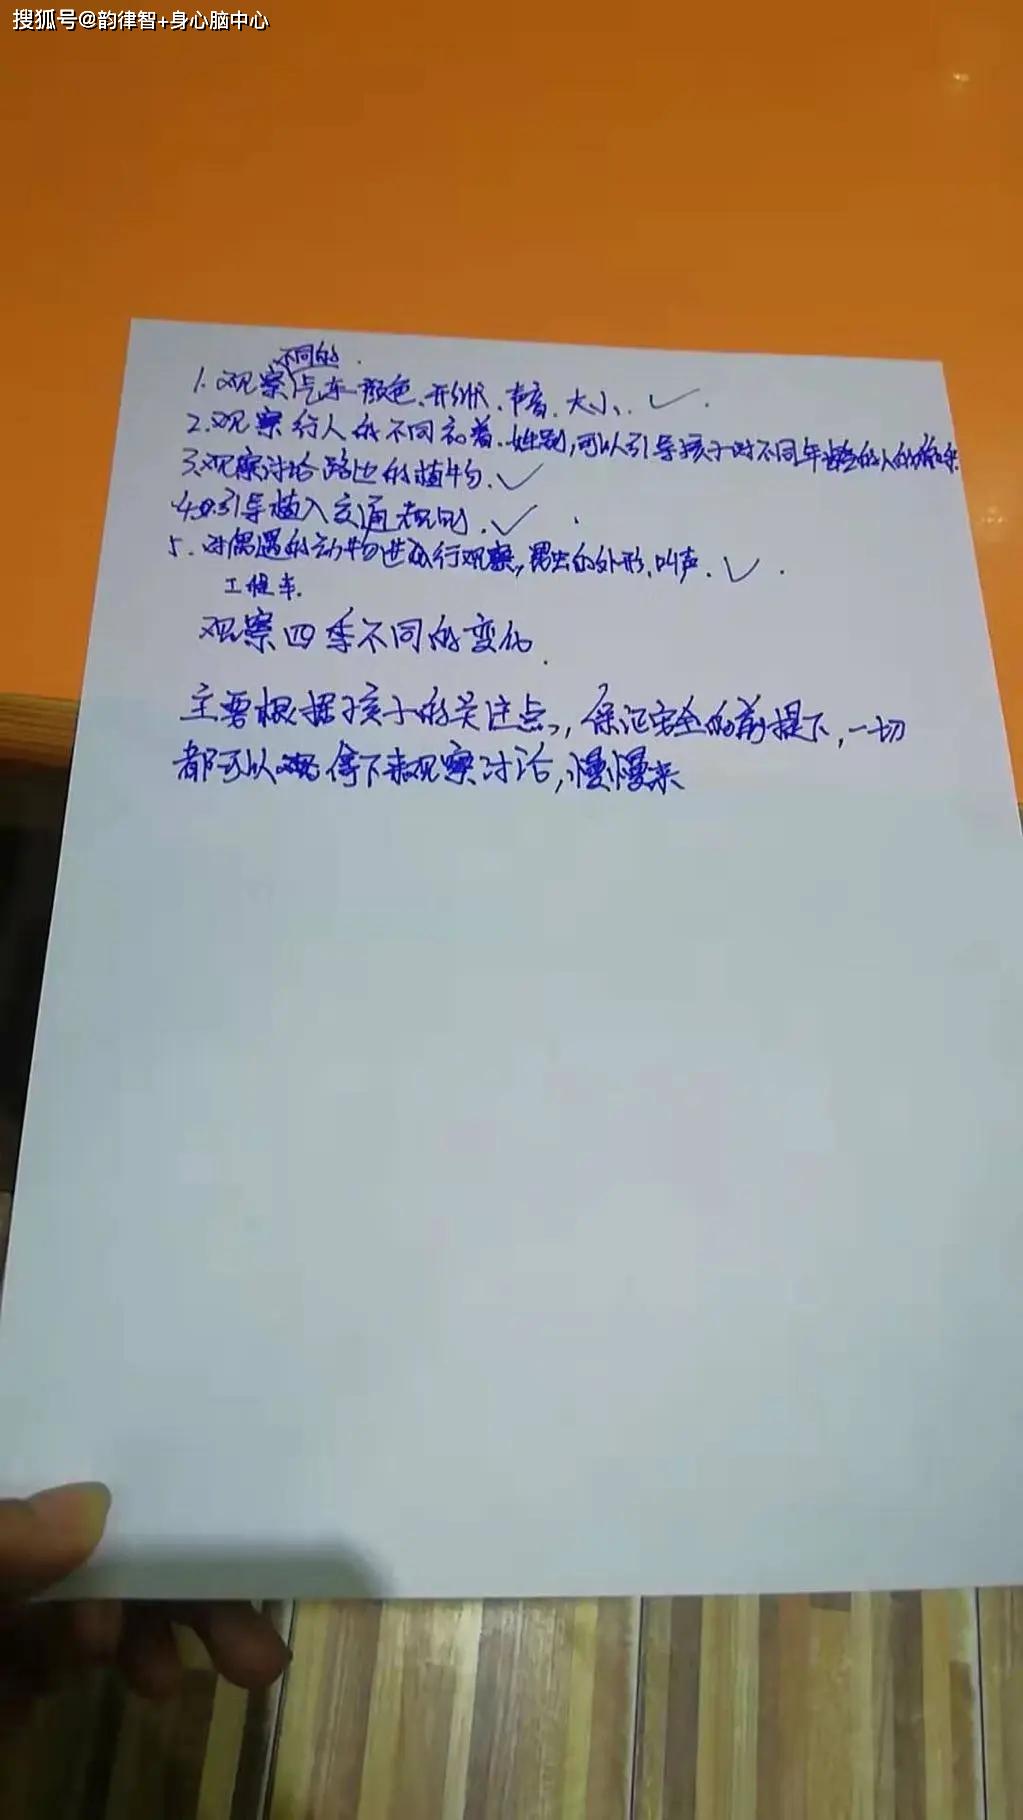 搜狐号@韵律智+身心脑中心
不同的
1.观察汽车颜色、形状、声音、大小、✓
2.观察行人的不同衣着、性别,可以引导孩子对不同年龄的人的称呼
3.观察讨论路边的植物.✓
4.引导植入交通规则.✓
5.对偶遇的动物进行观察,昆虫的外形,叫声.✓
工程车.
观察四季不同的变化.
主要根据孩子的关注点,保证安全的前提下,一切
都可以停下来观察讨论,慢慢来